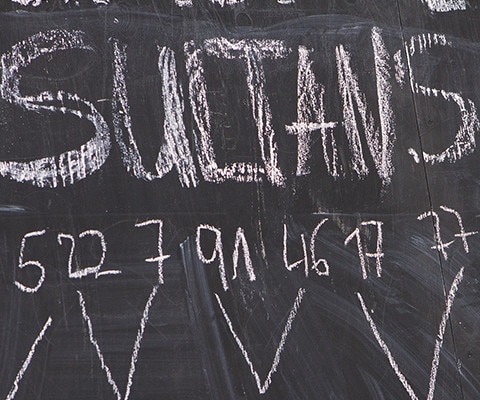 SULTANS
522 7 91 46 17 77